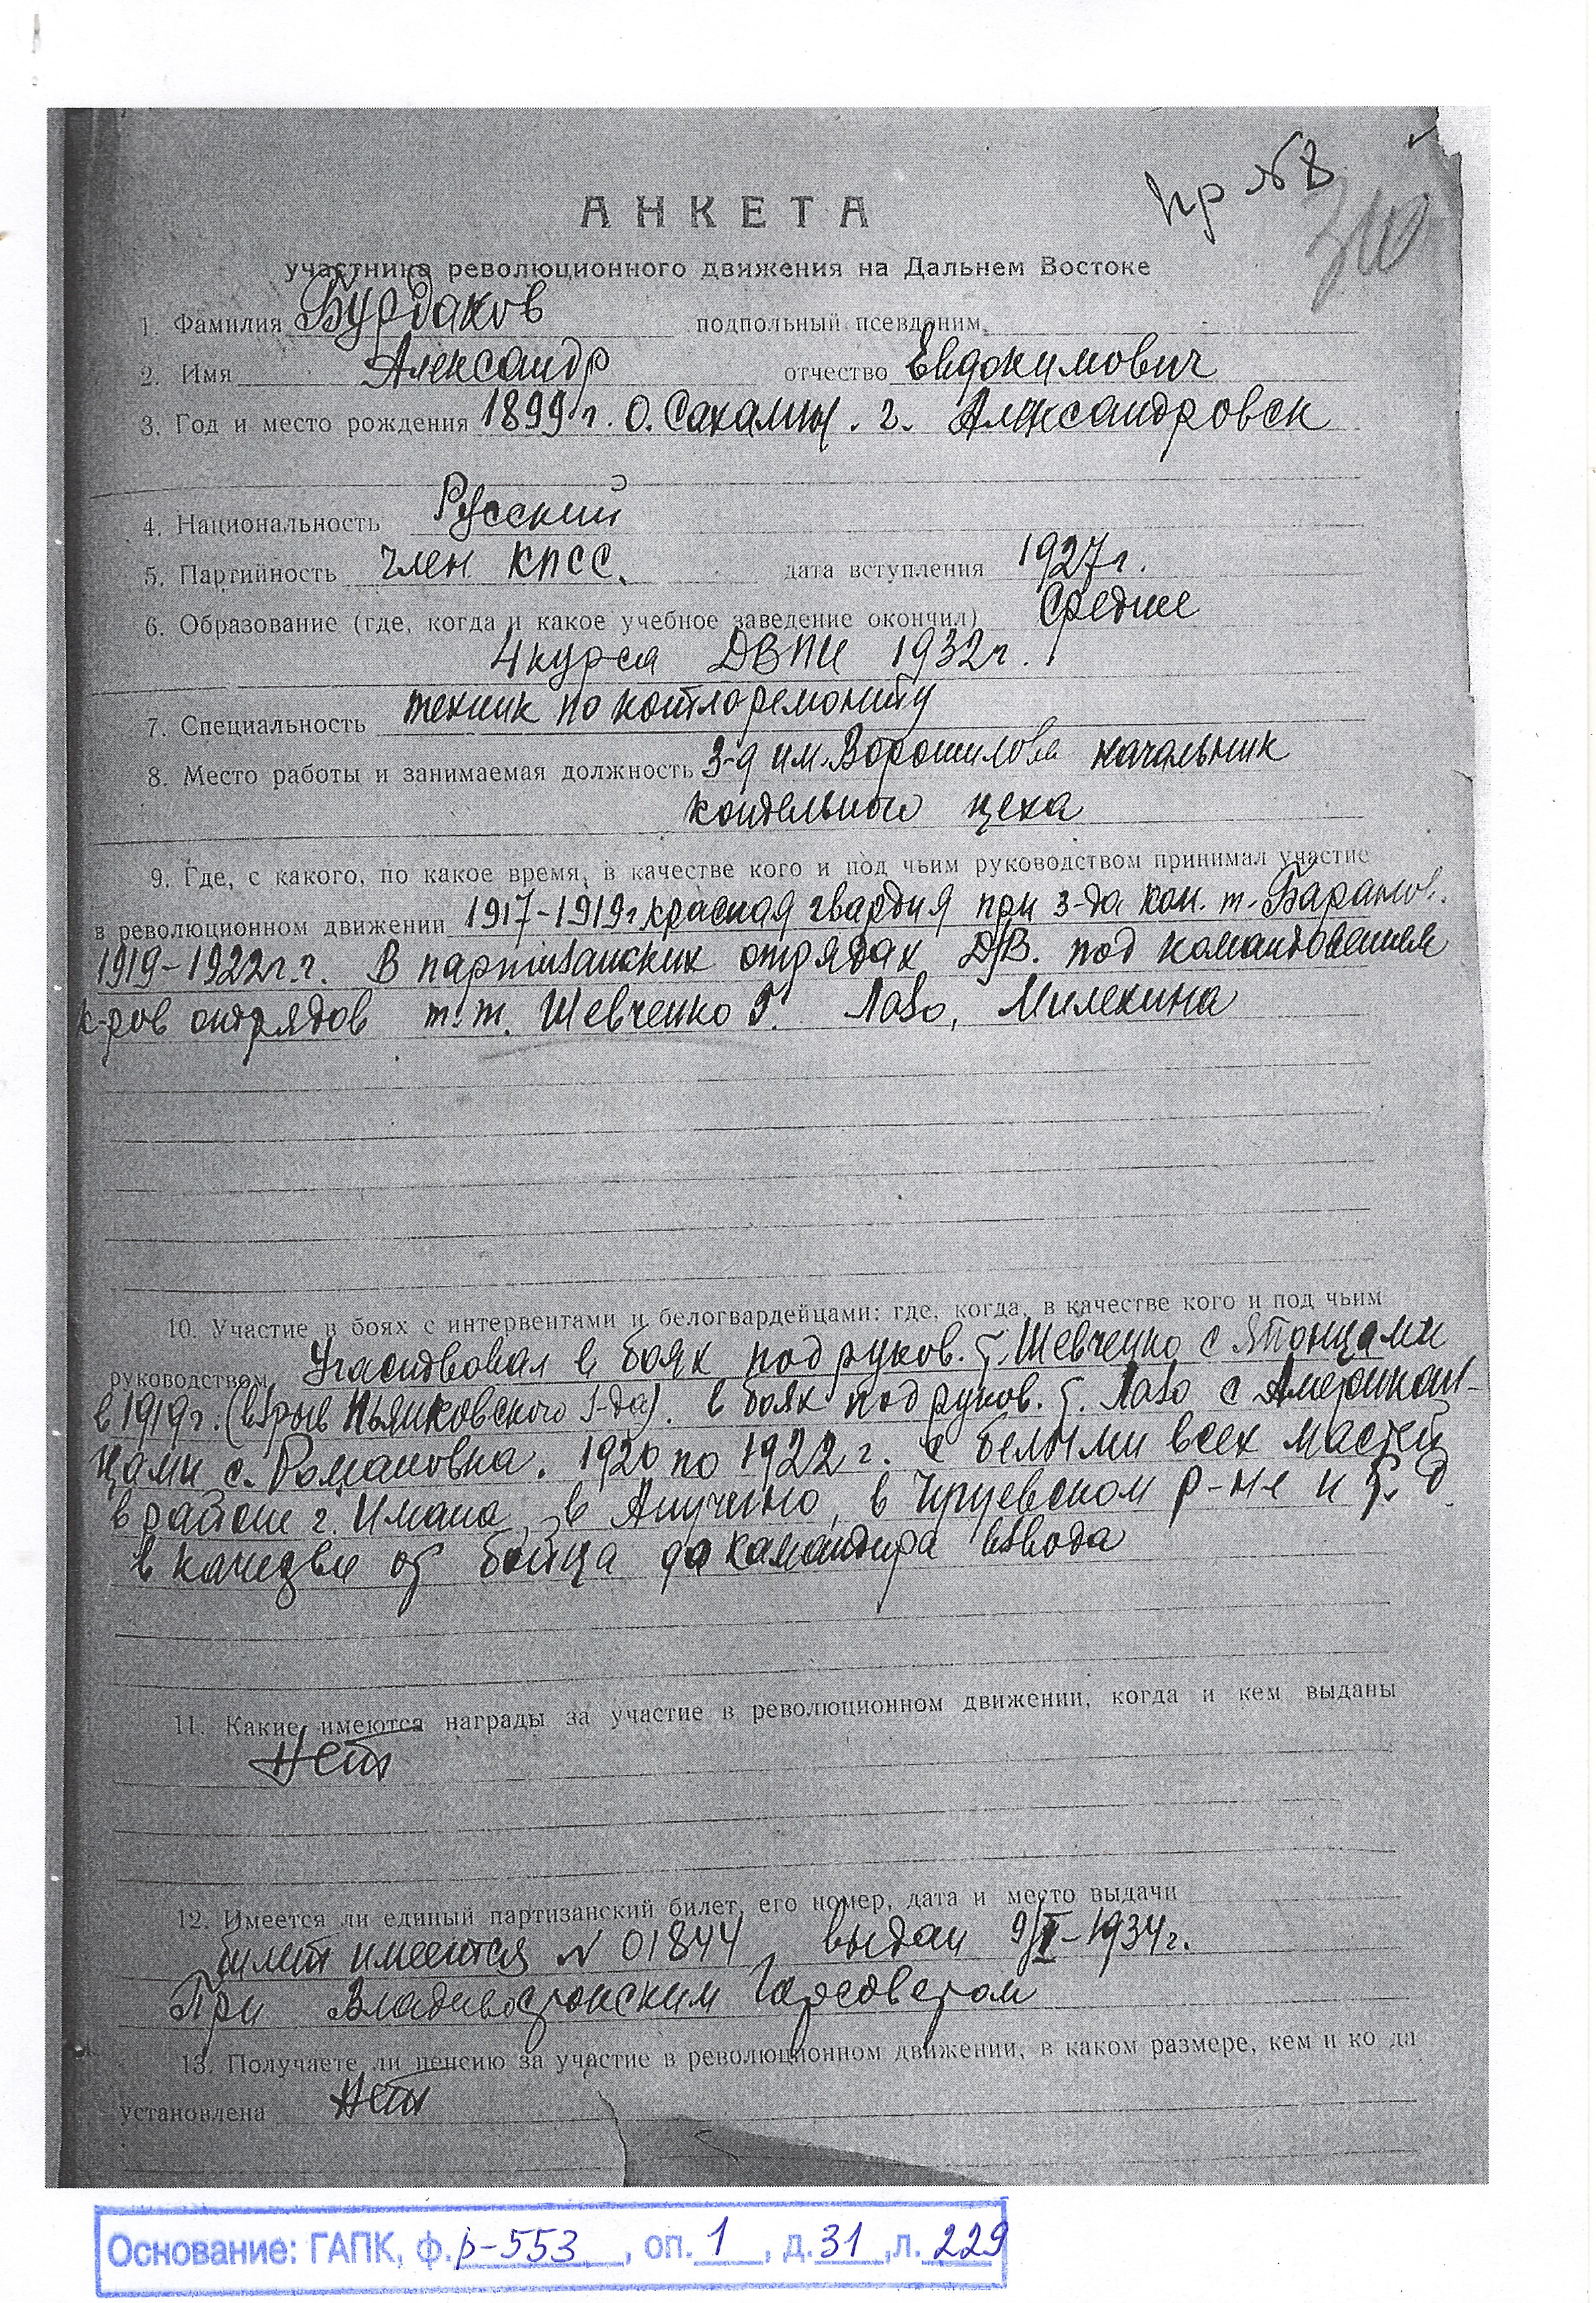 пр №8
АНКЕТА
участника революционного движения на Дальнем Востоке
1. Фамилия Бурдаков подпольный псевдоним
2. Имя Александр отчество Евдокимович
3. Год и место рождения 1899 г. О. Сахалин. г. Александровск
4. Национальность Русский
5. Партийность член КПСС. дата вступления 1927 г.
6. Образование (где, когда и какое учебное заведение окончил) Средне
4 курса ДВПИ 1932 г.
7. Специальность техник по котлоремонту
8. Место работы и занимаемая должность З-д им. Ворошилова начальник
котельного цеха
9. Где, с какого, по какое время, в качестве кого и под чьим руководством принимал участие
в революционном движении 1917-1919 г красная гвардия при з-да ком. т. Баранов.
1919-1922 г.г. В партизанских отрядах ДВ. под командованием
к-ров отрядов т.т. Шевченко Г. Лазо, Милехина
10. Участие в боях с интервентами и белогвардейцами: где, когда, в качестве кого и под чьим
руководством Участвовал в боях под руков. т. Шевченко с Японцами
в 1919 г. (взрыв Пьянковского з-да). в боях под руков. т. Лазо с Американ-
цами с. Романовка. 1920 по 1922 г. с белыми всех мастей
в районе г. Имана, в Анучино, в Чугуевском р-не и т. д.
в качедве от бойца до командира взвода
11. Какие имеются награды за участие в революционном движении, когда и кем выданы
Нет
12. Имеется ли единый партизанский билет, его номер, дата и место выдачи
билет имеется № 01844 выдан 9/II-1934 г.
При Владивостокским Горсоветом
13. Получаете ли пенсию за участие в революционном движении, в каком размере, кем и ко да
установлена Нет
Основание: ГАПК, ф. р-553, оп. 1, д. 31, л. 229